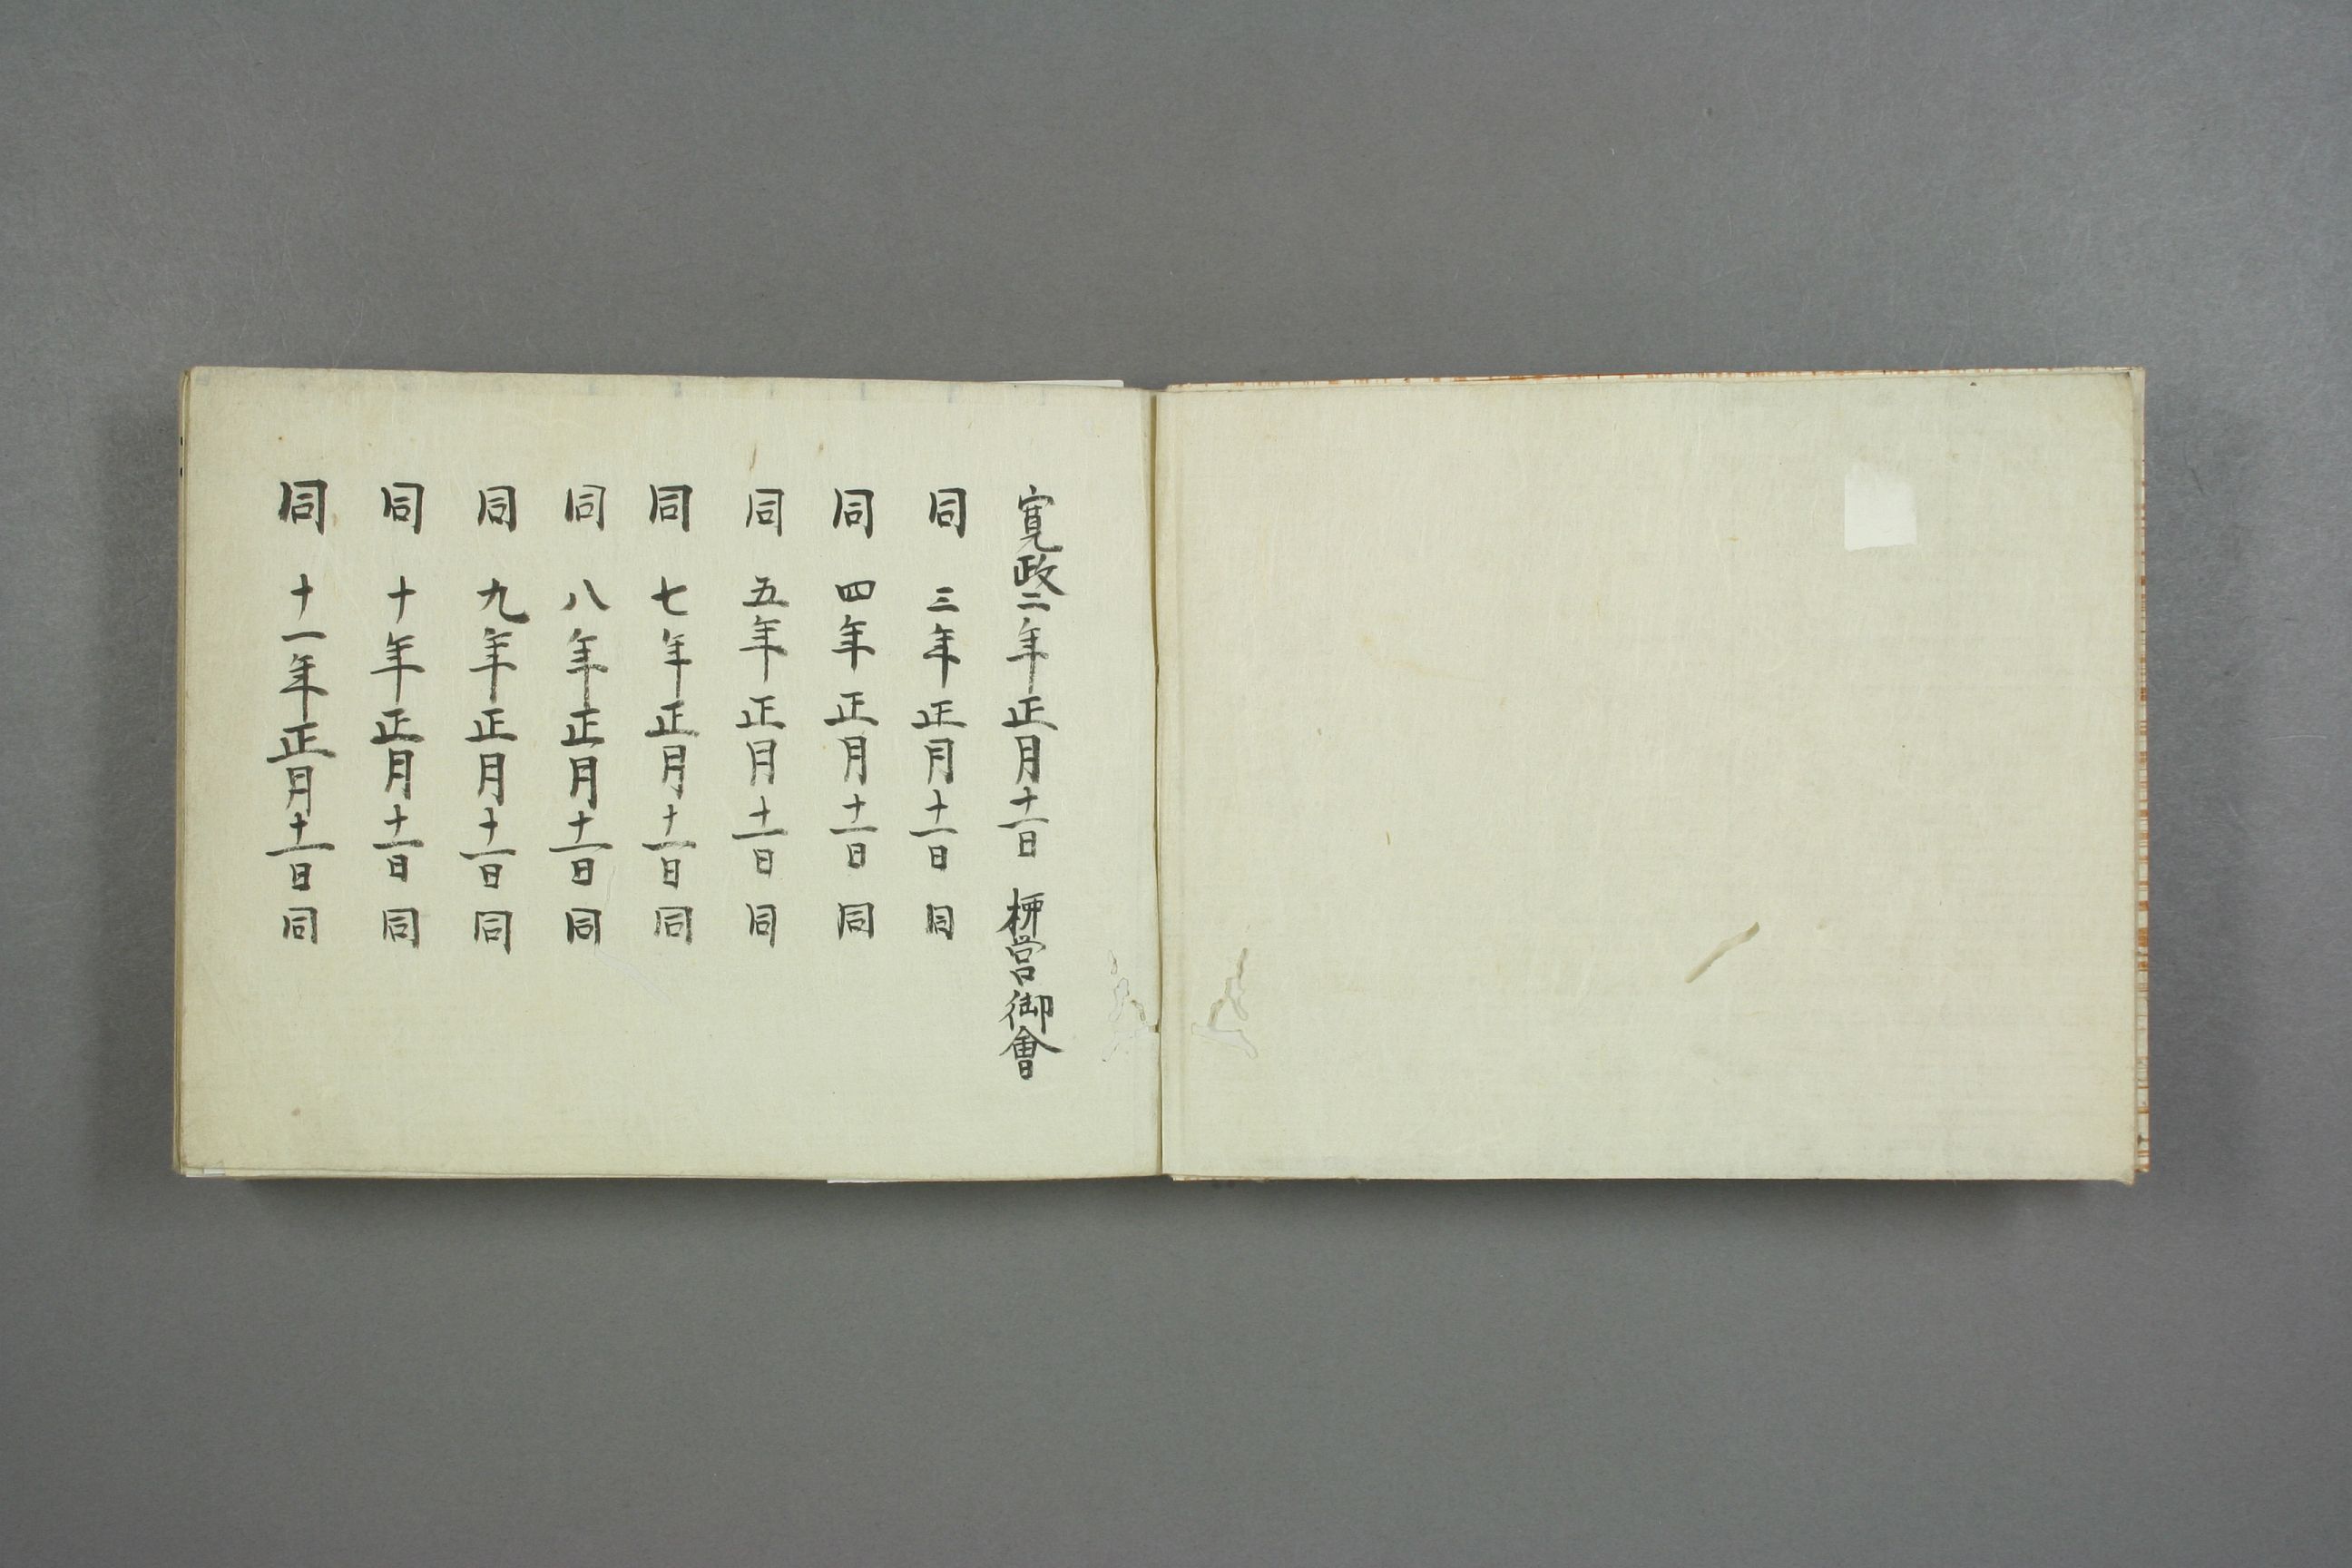 寛政二年正月十一日 柳営御會
同 三年正月十一日 同
同 四年正月十一日 同
同 五年正月十一日 同
同 七年正月十一日 同
同 八年正月十一日 同
同 九年正月十一日 同
同 十年正月十一日 同
同 十一年正月十一日 同